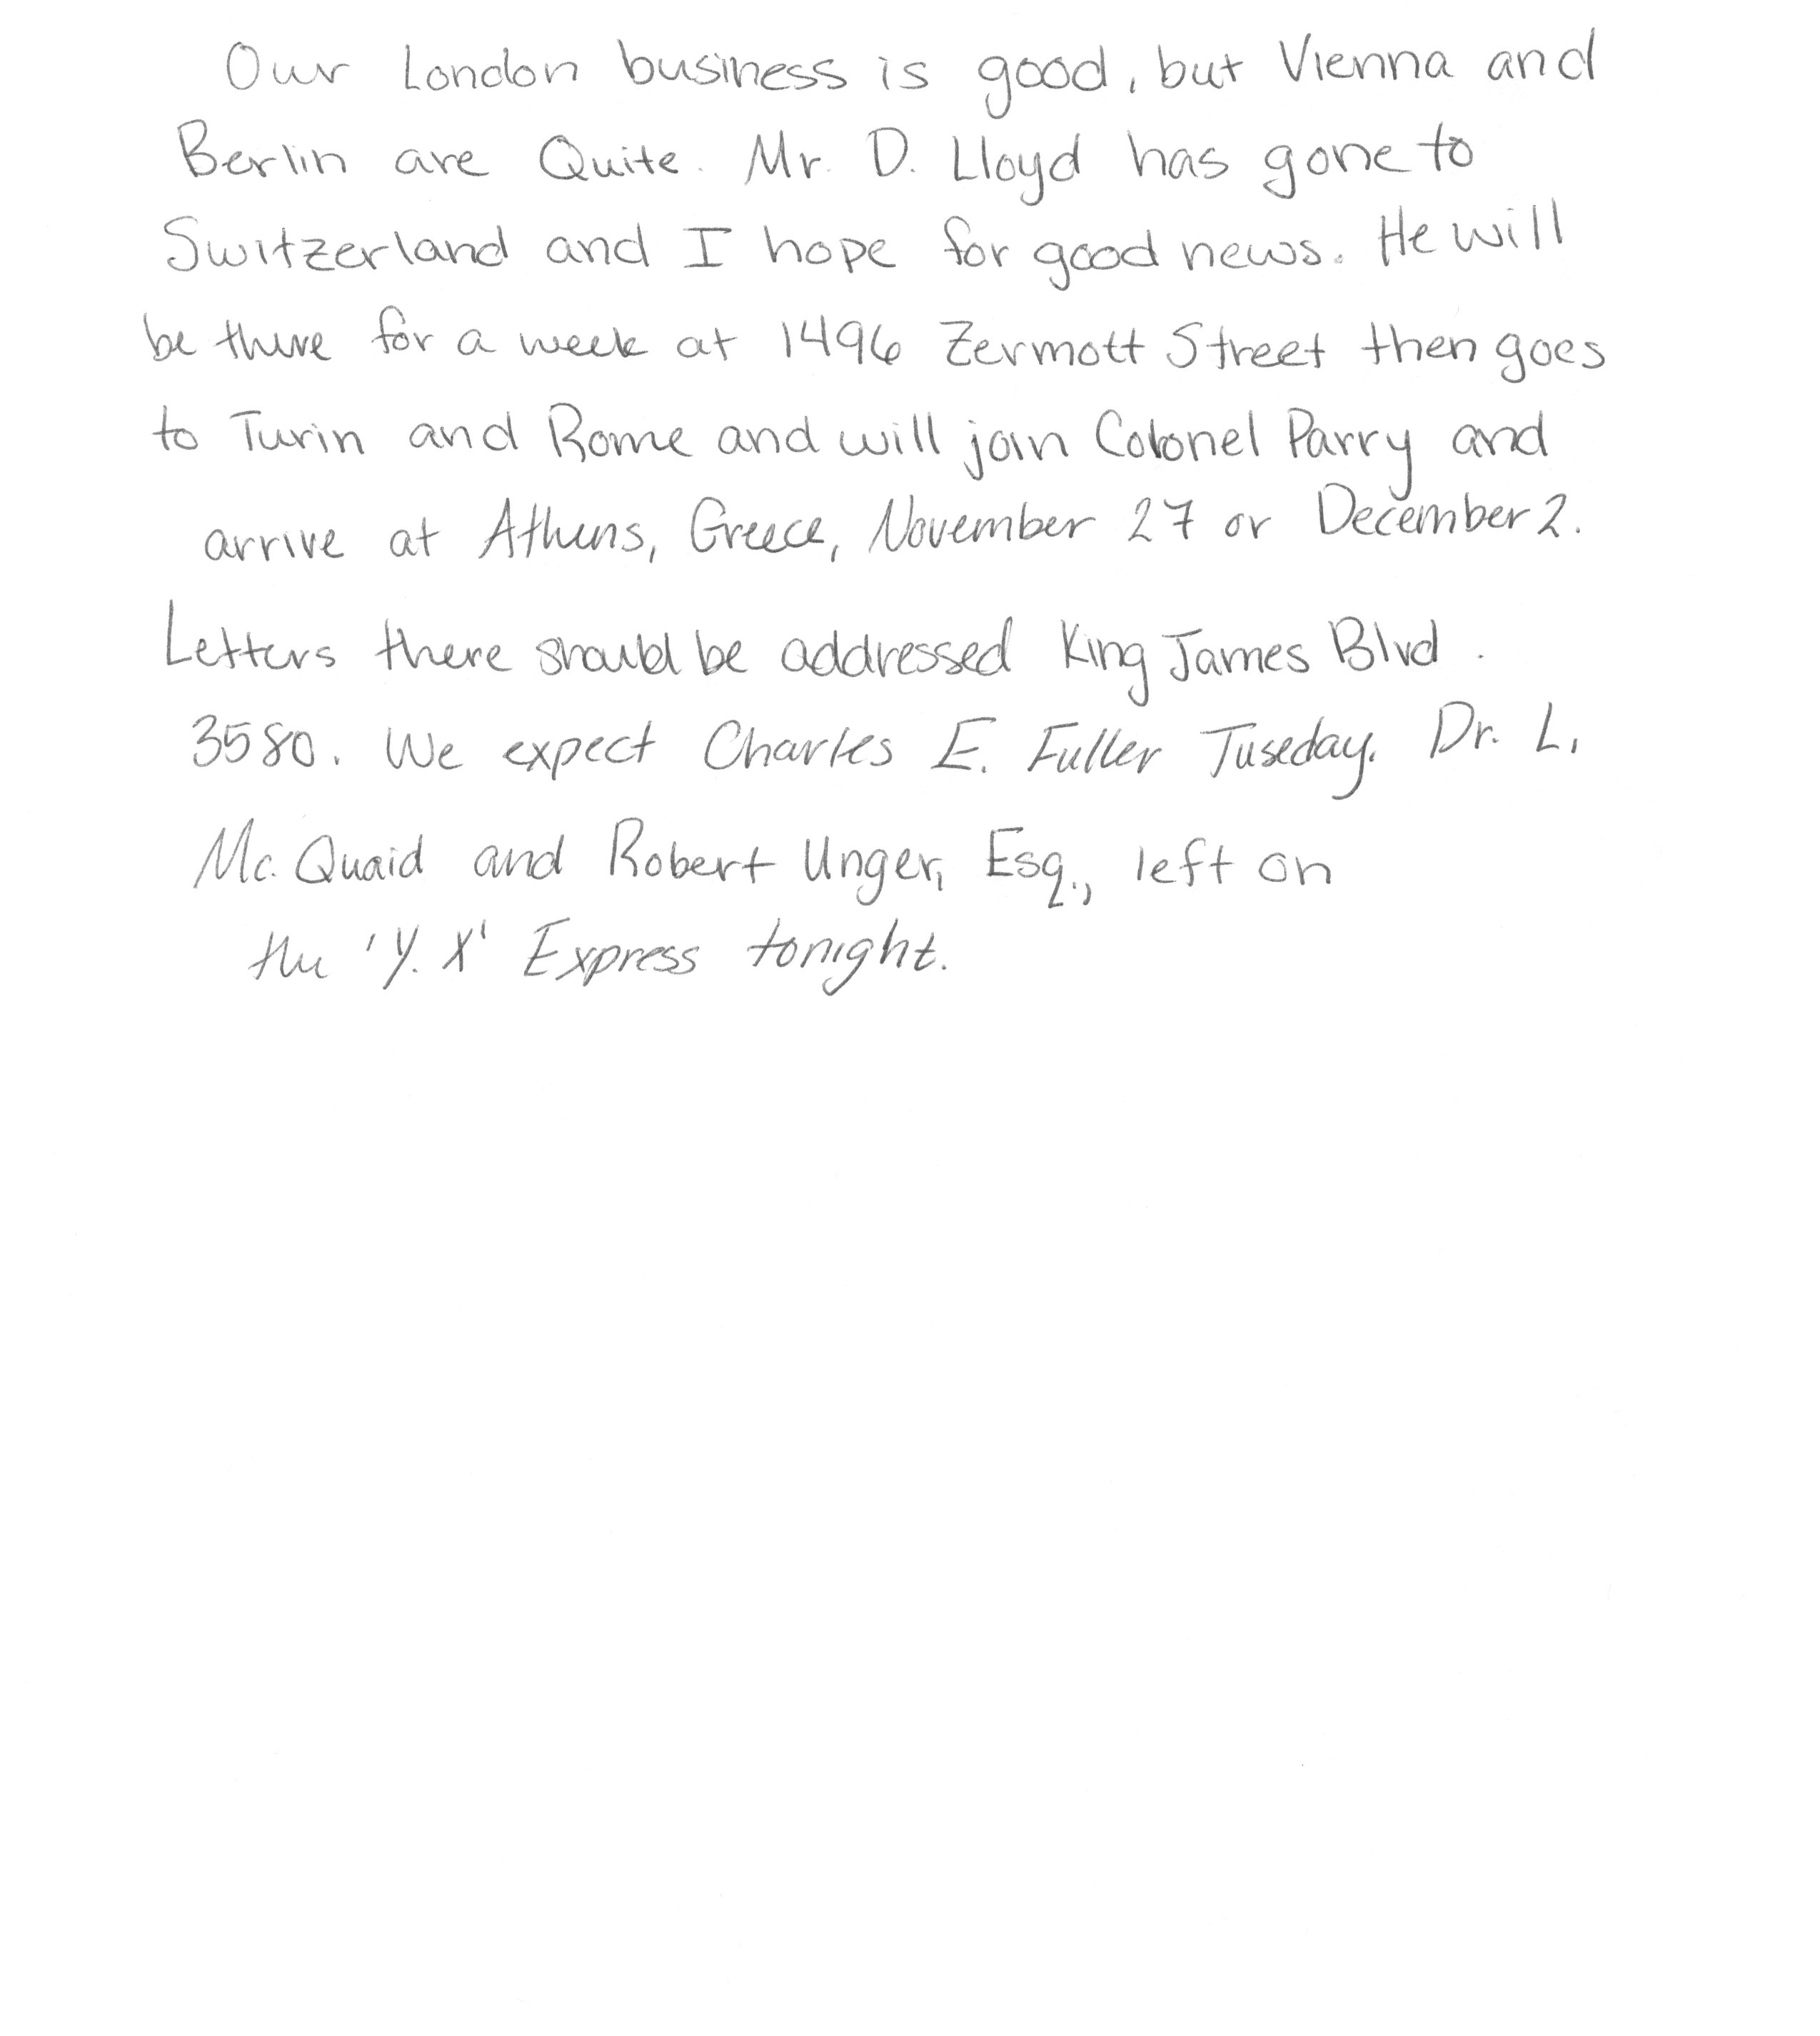 Our London business is good, but Vienna and
Berlin are Quite. Mr. D. Lloyd has gone to
Switzerland and I hope for good news. He will
be there for a week at 1496 Zermott Street then goes
to Turin and Rome and will join Colonel Parry and
arrive at Athens, Greece, November 27 or December 2.
Letters there should be addressed King James Blvd.
3580. We expect Charles E. Fuller Tuseday. Dr. L.
Mc. Quaid and Robert Unger, Esq., left on
the 'Y. X' Express tonight.